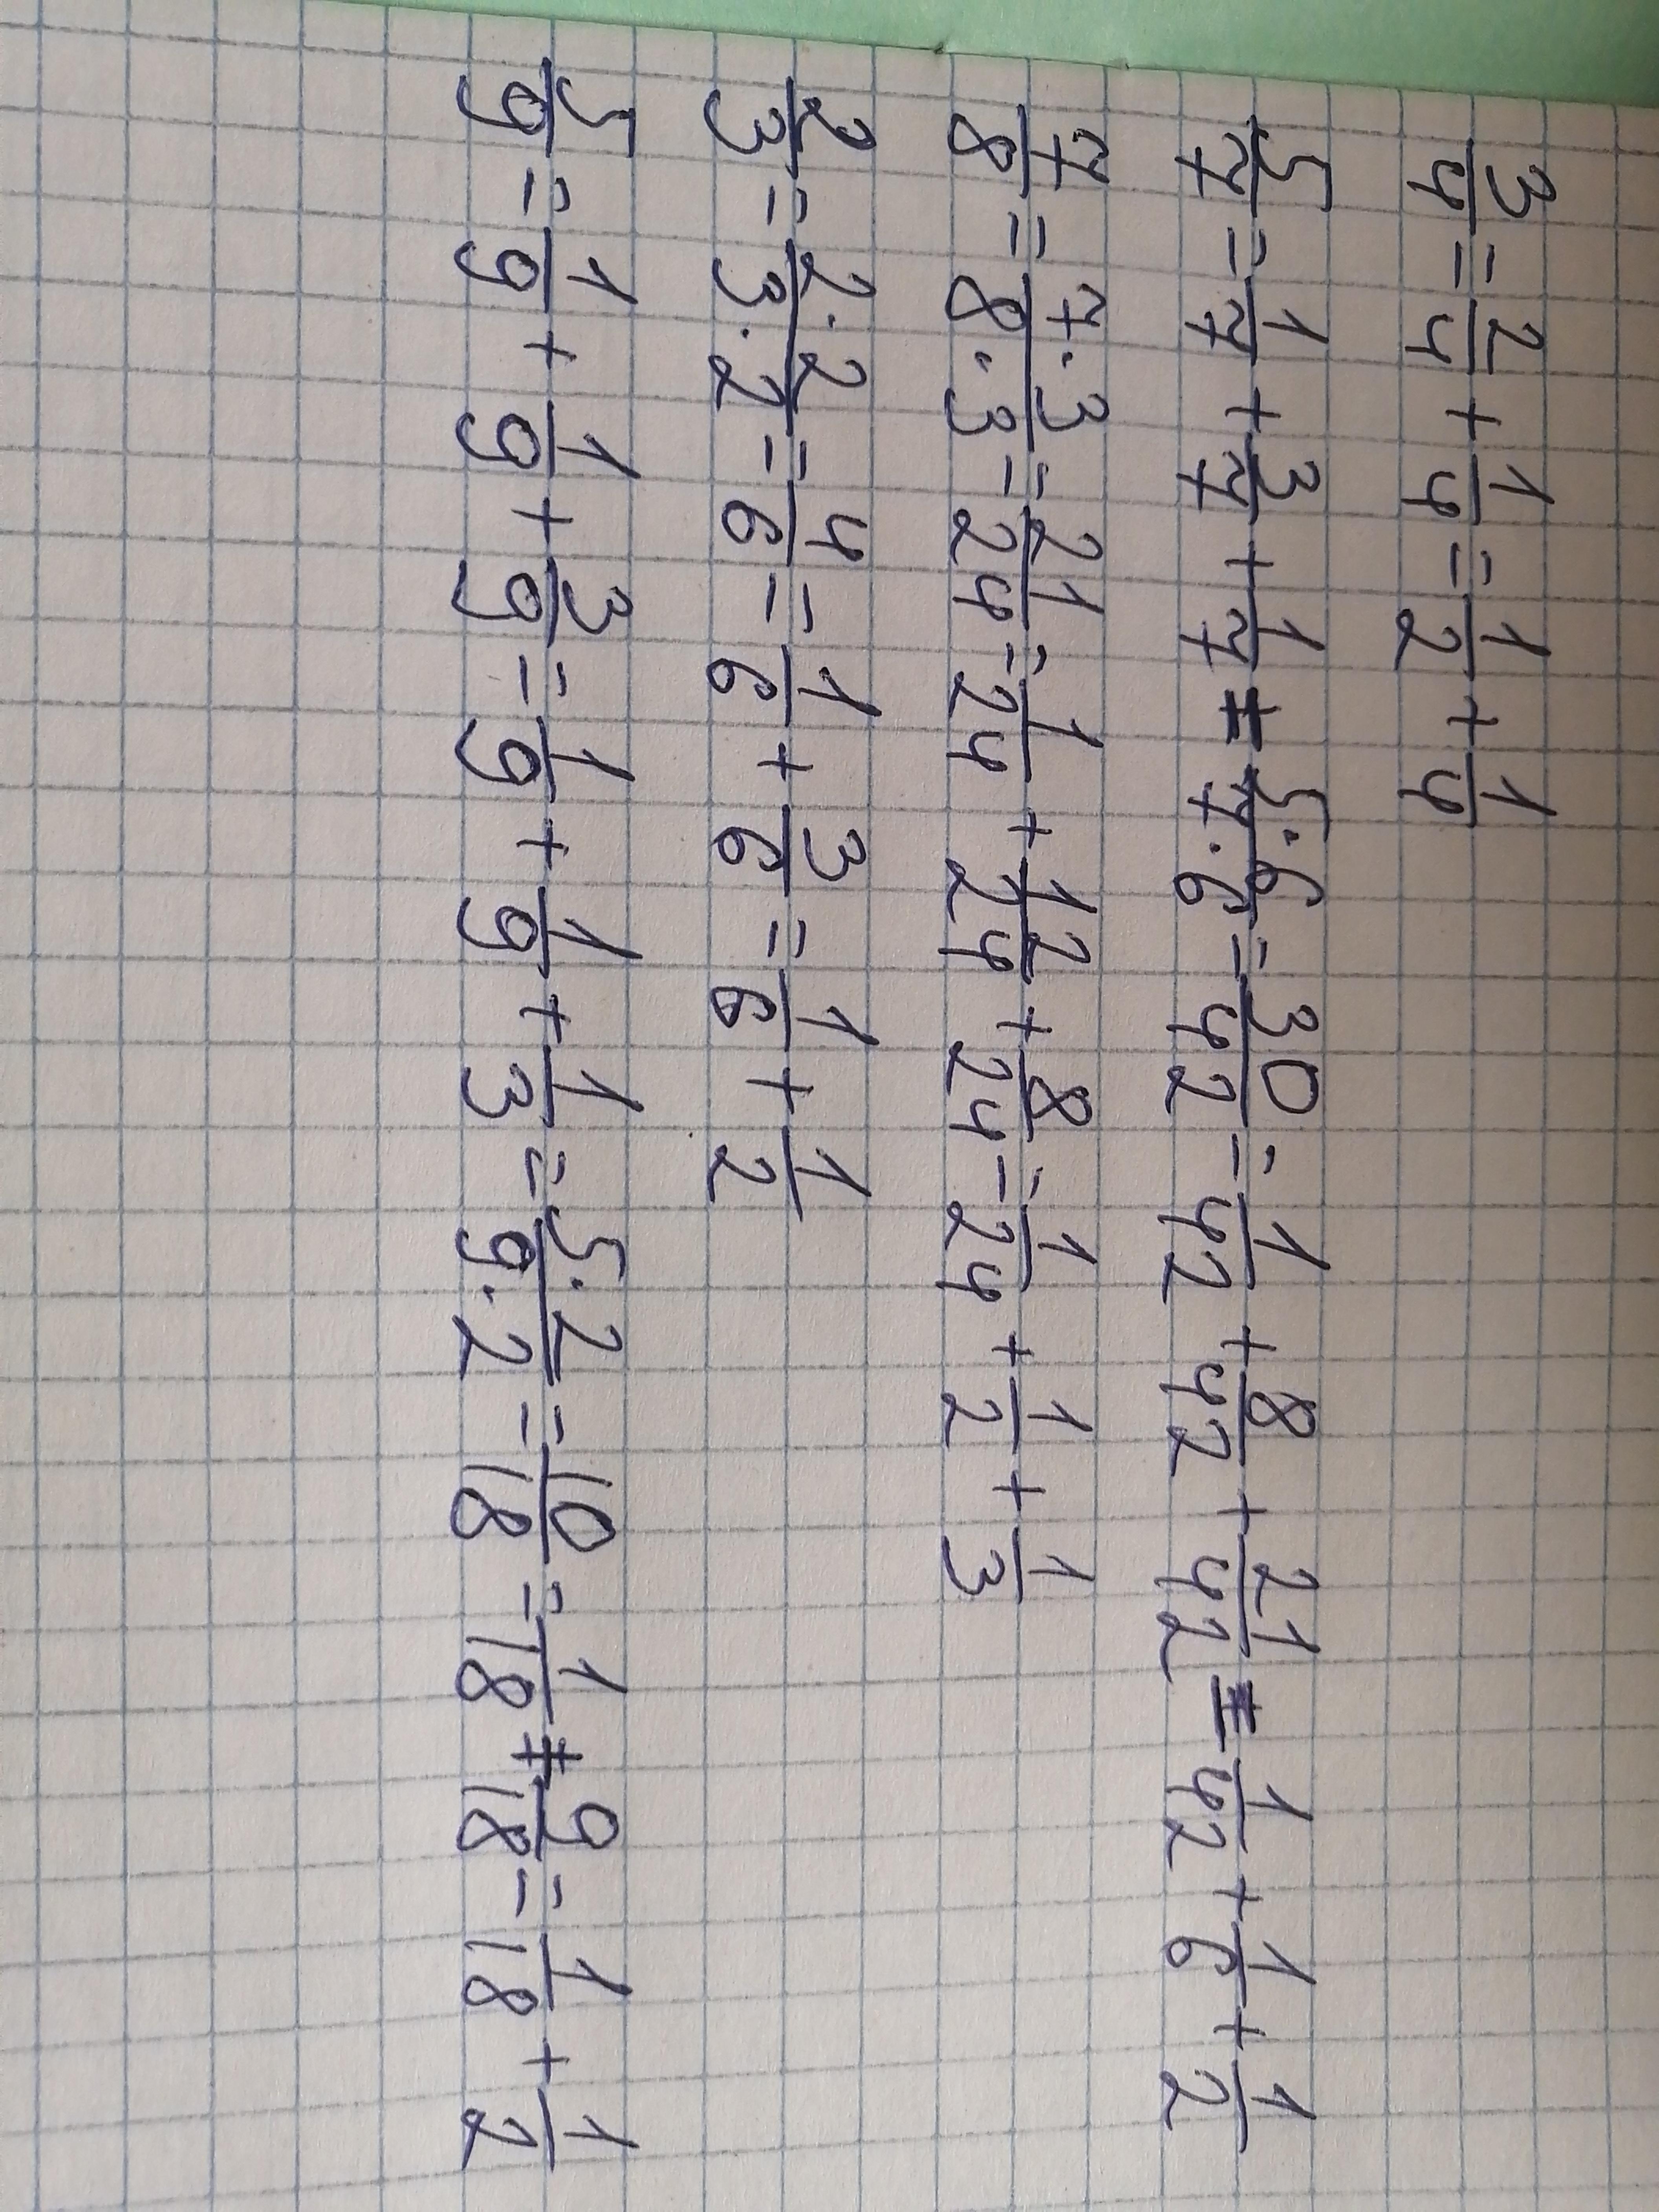 3/4 = 2/4 + 1/4 = 1/2 + 1/4
5/7 = 1/7 + 3/7 + 1/7 = 5·6/7·6 = 30/42 = 1/42 + 8/42 + 21/42 = 1/42 + 1/6 + 1/2
7/8 = 7·3/8·3 = 21/24 = 1/24 + 12/24 + 8/24 = 1/24 + 1/2 + 1/3
2/3 = 2·2/3·2 = 4/6 = 1/6 + 3/6 = 1/6 + 1/2
5/9 = 1/9 + 1/9 + 3/9 = 1/9 + 1/9 + 1/3 = 5·2/9·2 = 10/18 = 1/18 + 9/18 = 1/18 + 1/2